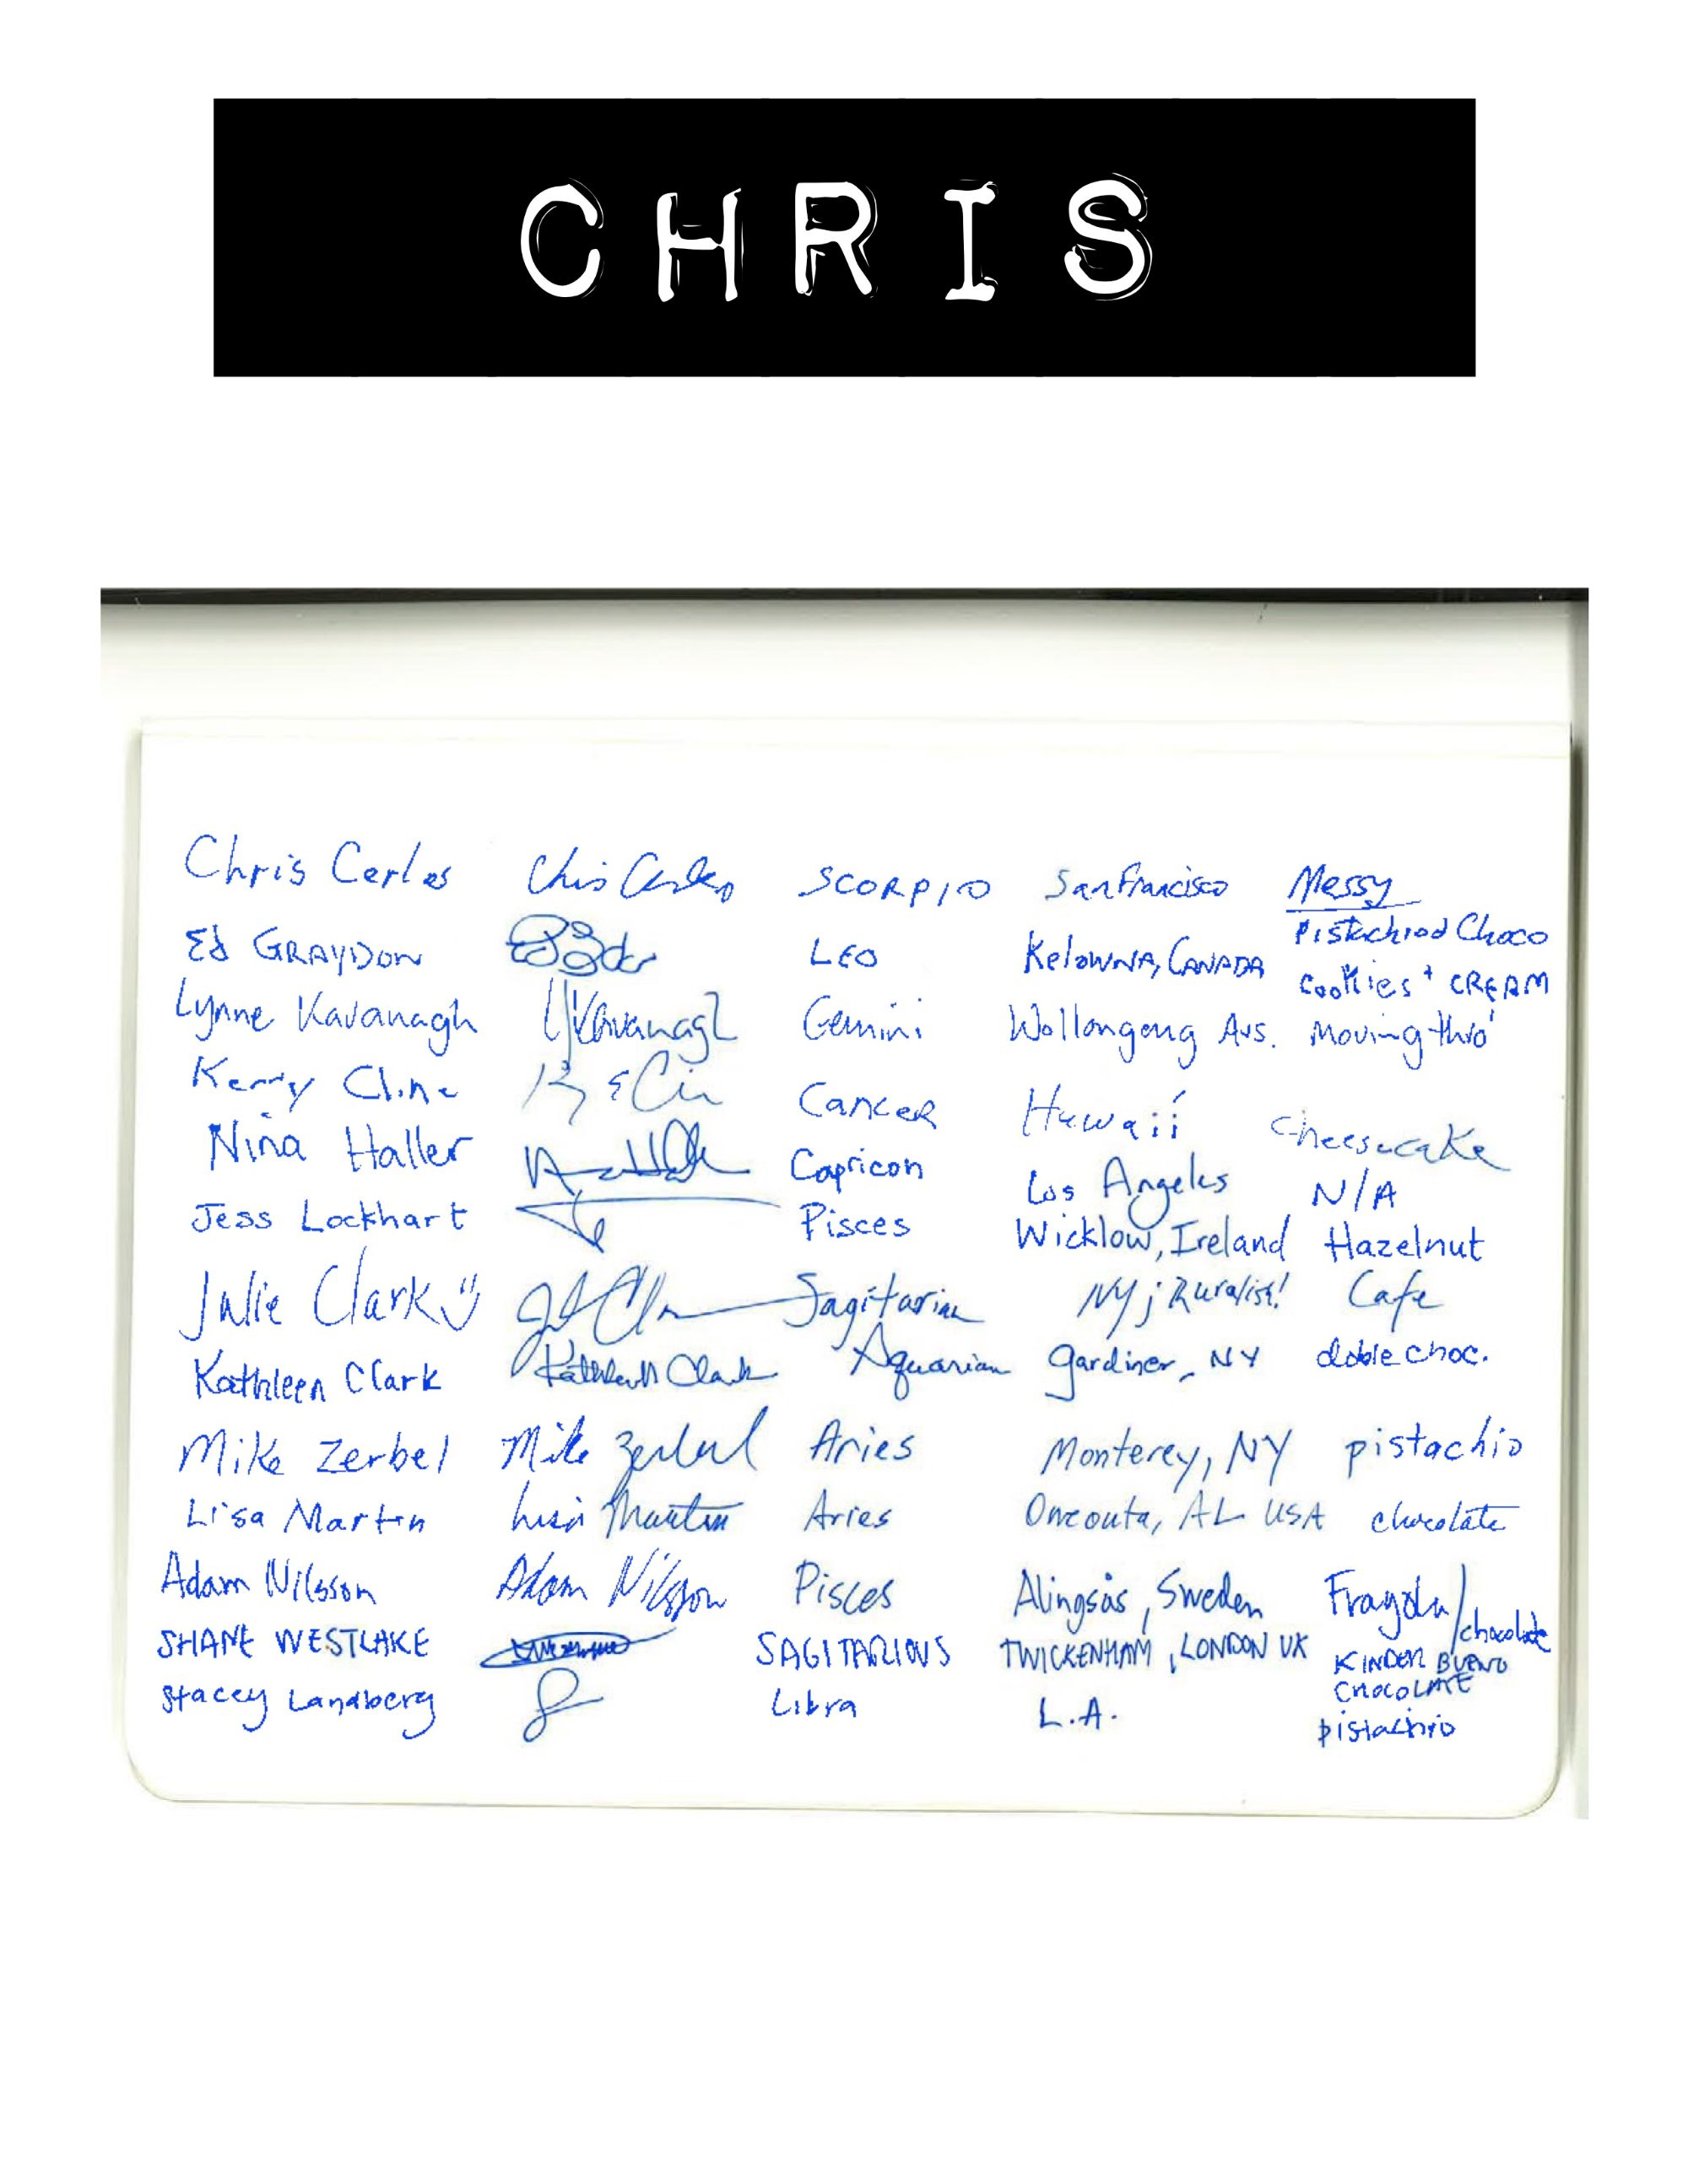 CHRIS
Chris Cerles Chris Cerles SCORPIO San Francisco Messy
Pistachio d Choco
Ed GRAYDON LEO Kelowna, CANADA Cookies + CREAM
Lynne Kavanagh LKavanagh Gemini Wollongong Aus. Moving thro'
Kerry Cline Cancer Hawaii cheesecake
Nina Haller Capricon Los Angeles N/A
Jess Lockhart Pisces Wicklow, Ireland Hazelnut
Julie Clark Sagitarian NY; Ruralist! Cafe
Kathleen Clark Kathleen Clark Aquarian Gardiner, NY doble choc.
Mike Zerbel Mike Zerbel Aries Monterey, NY pistachio
Lisa Martin Lisa Martin Aries Oneonta, AL USA chocolate
Adam Nilsson Adam Nilsson Pisces Alingsås, Sweden Fragola/chocolate
SHANE WESTLAKE SAGITARIUS TWICKENHAM, LONDON UK KINDER BUENO
CHOCOLATE
Stacey Landberg Libra L.A. pistachio